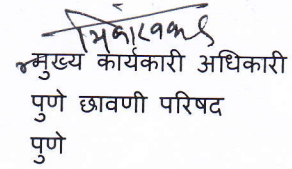 मुख्य कार्यकारी अधिकारी
पुणे छावणी परिषद
पुणे